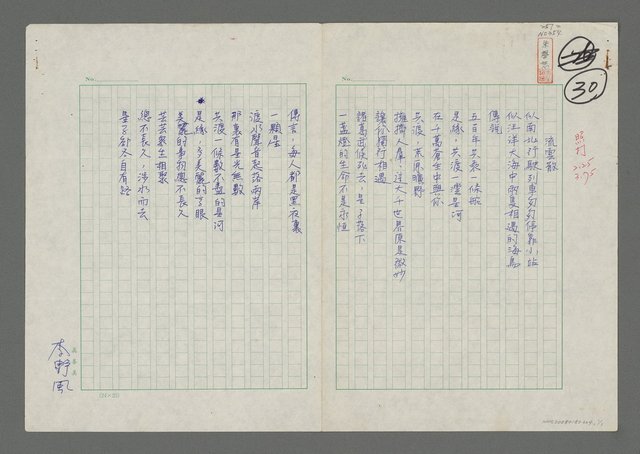 流雲散
似南北行駛列車匆匆停靠小站
似汪洋大海中兩隻相遇的海鳥
傳說
五百年共乘一條船
是緣，共渡一聲星河
在千萬蒼生中與你
共渡，荒原曠野
擁擠人群，这大千世界原是微妙
讓你獨行相遇
諸葛武侯死去，是夕落下
一盞燈的生命不是永恒
傳言，每人都是黑夜裏
一顆星
渡水聲音起落兩岸
那裏有星光無數
共渡一條數不盡的星河
是緣，多美麗的字眼
美麗的事物總不長久
芸芸眾生相聚
總不長久，涉水而去
星子都各自有路
李野風
No.
No.
30
照打
(24×25)